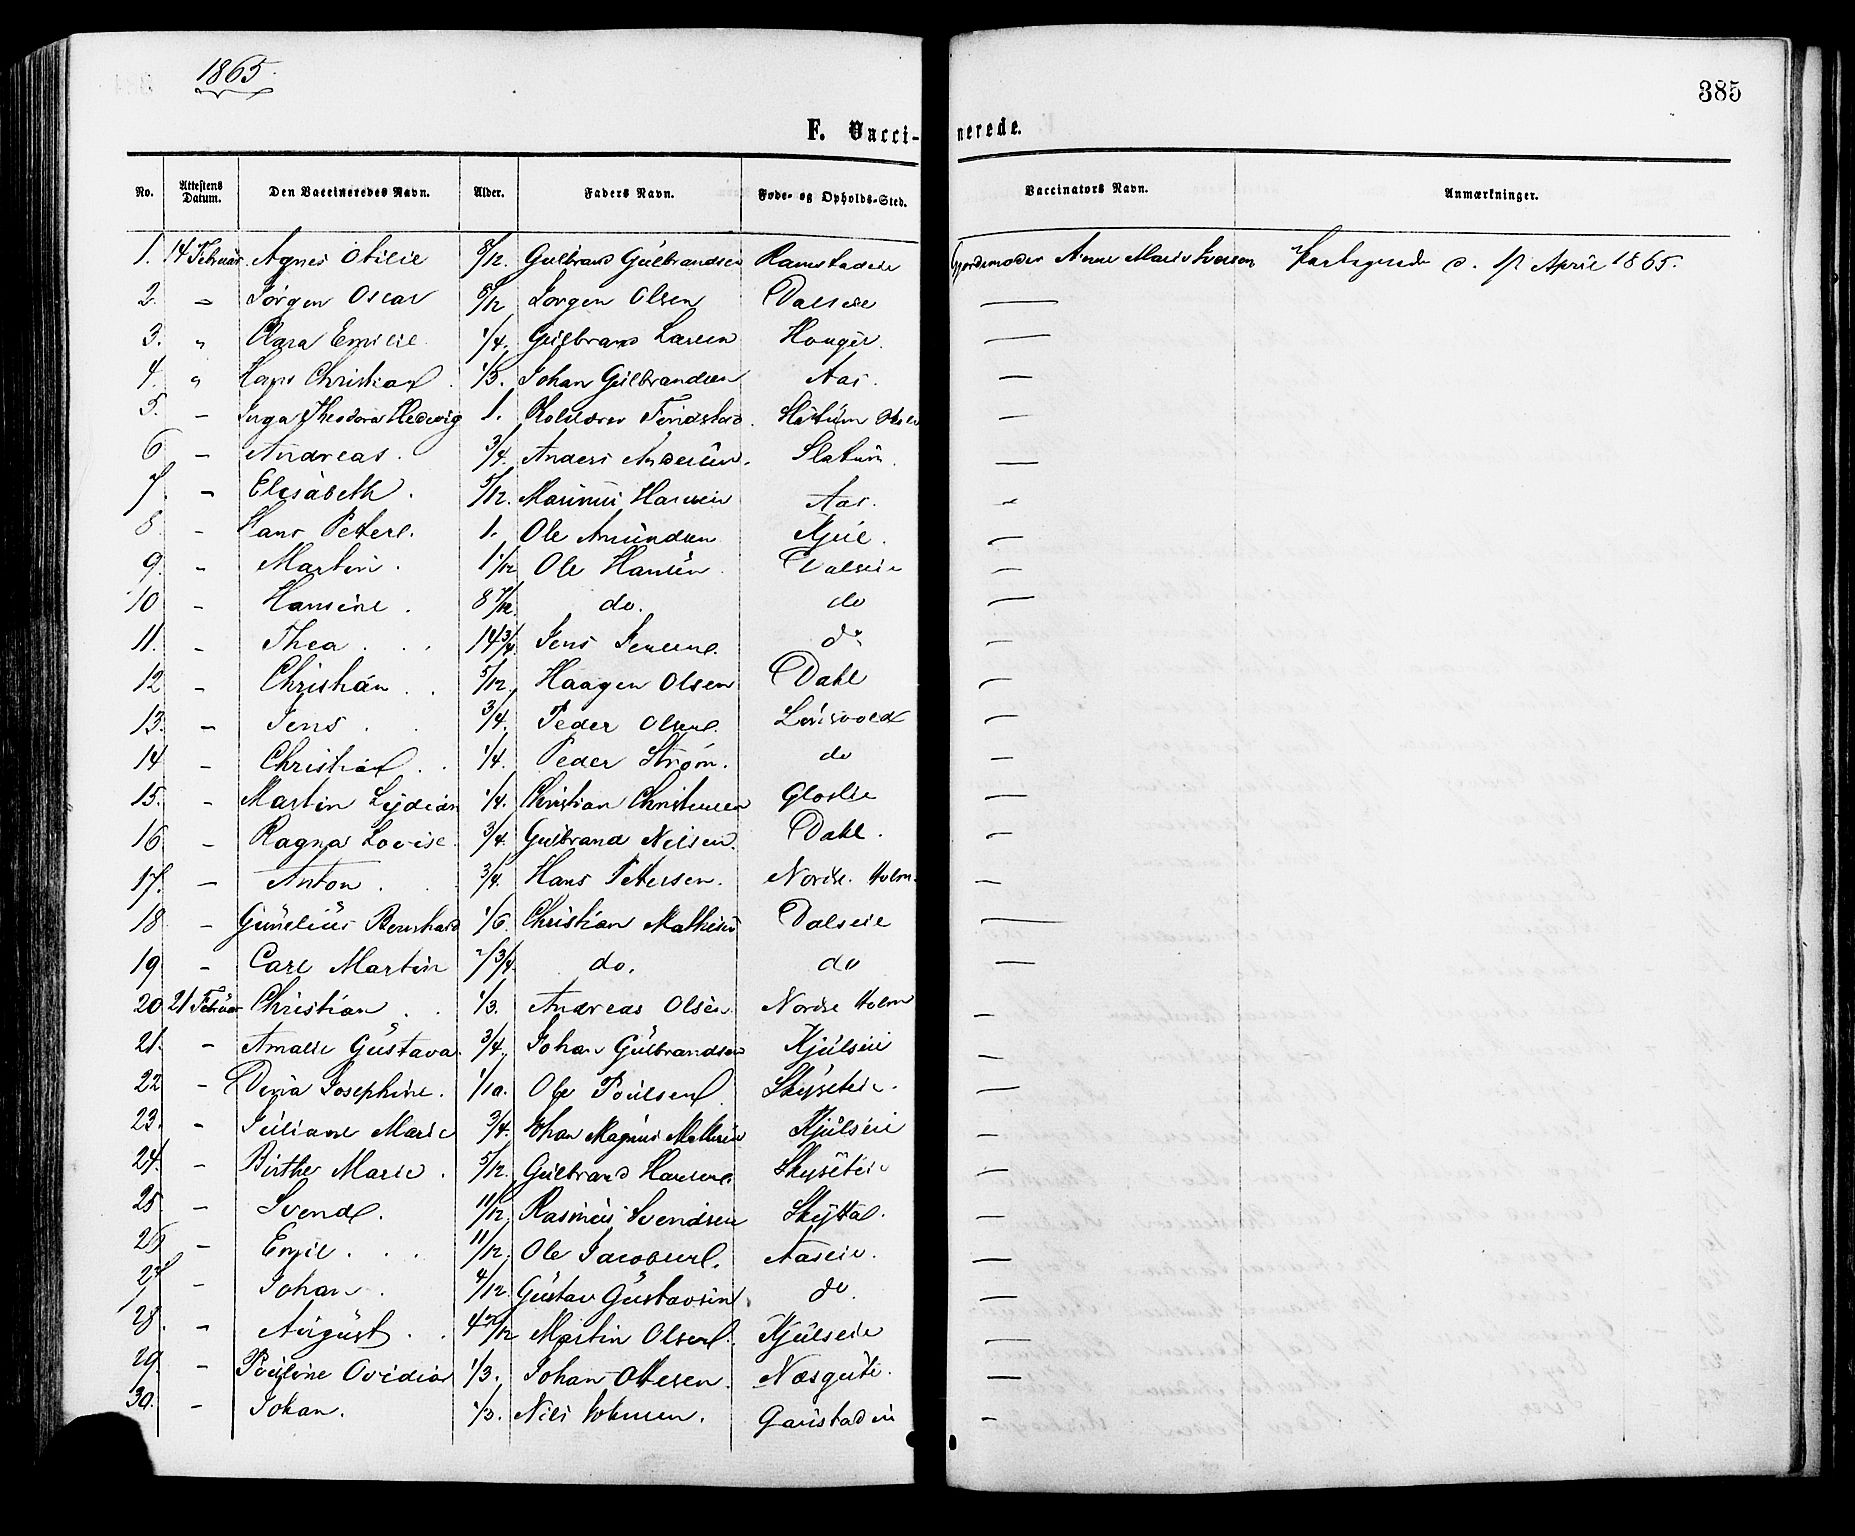 1865.
385
F. Vacci-
nerede.
No. Attestens Datum. Den Vaccineredes Navn. Alder. Faders Navn. Føde- og Opholds-Sted. Vaccinators Navn. Anmærkninger.
1. 14 Februar Agnes Otilie 8/12. Gulbrand Gulbrandsen Ramstadeie Gjordemoder Anne Marie Iversen April 1865.
2. - Jørgen Oscar 8/12 Jørgen Olsen Dalseie —
3. " Clara Emilie 1/4. Gulbrand Larsen Houger. —
4. " Hans Christian 1/3. Johan Gulbrandsen Aas. —
5. - Inga Theodora Hedevig 1. Findstad —
6 - Andreas. 3/4. Anders Andersen. Slatum. —
7. - Elisabeth. 5/12. Marinus Hansen Aas. -
8. - Hans Peter. 1. Ole Amundsen Kjul. —
9. - Martin. 1 1/12 Ole Hansen Dalseie —
10 - Hansine. 8 7/12. do. do —
11. - Thea... 14 3/4 Jens Jensen. do —
12 - Christian.. 5/12. Haagen Olsen Dahl —
13. - Jens.. 3/4. Peder Olsen. —
14 - Christian.. 1/4. Peder Strøm. do —
15. - Martin Lydian 1/4. Christian Christensen Gloslie —
16 - Ragna Lovise. 3/4. Gulbrand Nilsen. Dahl. —
17. - Anton... 3/4. Hans Pettersen. Nordre Holm. —
18 - Gunelius Bernhard 1/6. Christian Mathisen Dalseie —
19 - Carl Martin 2 3/4. do. do —
20 21 Februar Christian.. 1/3. Andreas Olsen Nordre Holm —
21. - Amalie Gustava. 3/4. Johan Gulbrandsen Kjulseie —
22 - Josephine. 1/10. Ole Poulsen Skyseteie. —
23. - Juliane Marie 3/4. Johan Magnus Kjulseie —
24. - Birthe Marie. 5/12. Gulbrand Hansen. Skyseteie —
25 - Svend. 11/12. Rasmus Svendsen Skyttal. —
26 - Emil... 11/12. Ole Jacobsen. Aaseie. —
27 - Johan. 4/12. Gustav Gustavsen. do. —
28. - August.. 4 Martin Olsen. Kjulseie —
29. - Pauline Ovidia 1/3. Johan Ottesen. —
30. - Johan. 1/3. Nils Johnsen. -